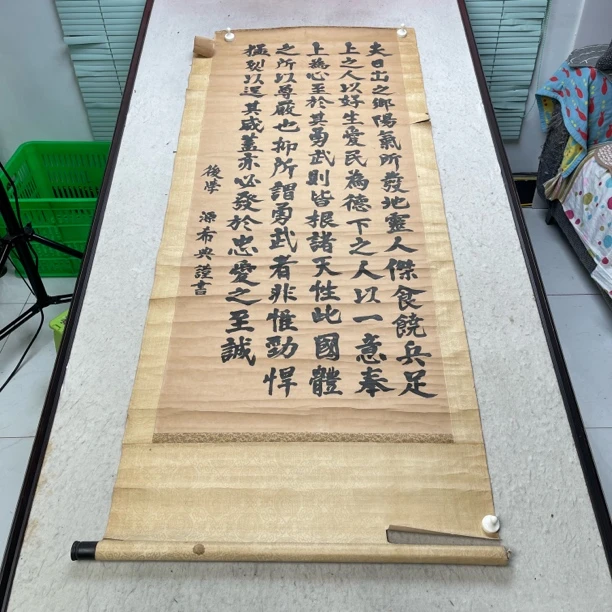 夫日出之鄉陽氣所發地靈人傑食饒兵足
上之人以好生愛民為德下之人以一意奉
上為心至於其勇武則皆根諸天性此國體
之所以尊嚴也抑所謂勇武者非惟勁悍
猛烈以逞其威蓋亦必發於忠愛之至誠
後學 源希典謹書